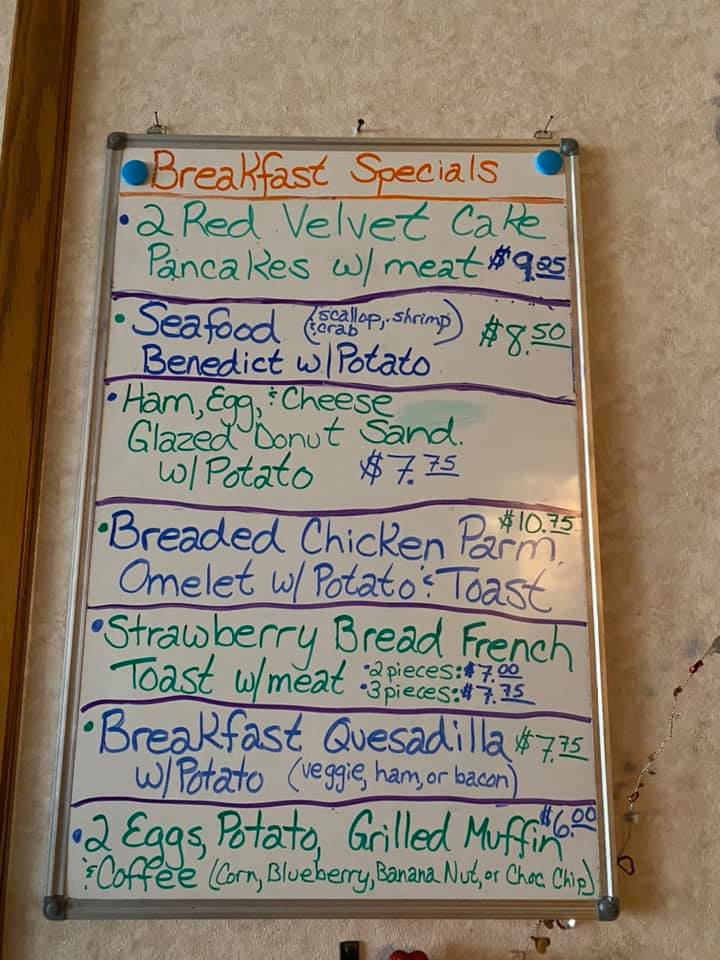 Breakfast Specials
• 2 Red Velvet Cake
Pancakes w/ meat $9.25
• Seafood (scallop, shrimp & crab) $8.50
Benedict w/ Potato
• Ham, Egg, & Cheese
Glazed Donut Sand.
w/ Potato $7.75
• Breaded Chicken Parm. $10.75
Omelet w/ Potato & Toast
• Strawberry Bread French
Toast w/ meat • 2 pieces: $7.00
• 3 pieces: $7.75
• Breakfast Quesadilla $7.75
w/ Potato (veggie, ham, or bacon)
• 2 Eggs, Potato, Grilled Muffin $6.00
& Coffee (Corn, Blueberry, Banana Nut, or Choc Chip)